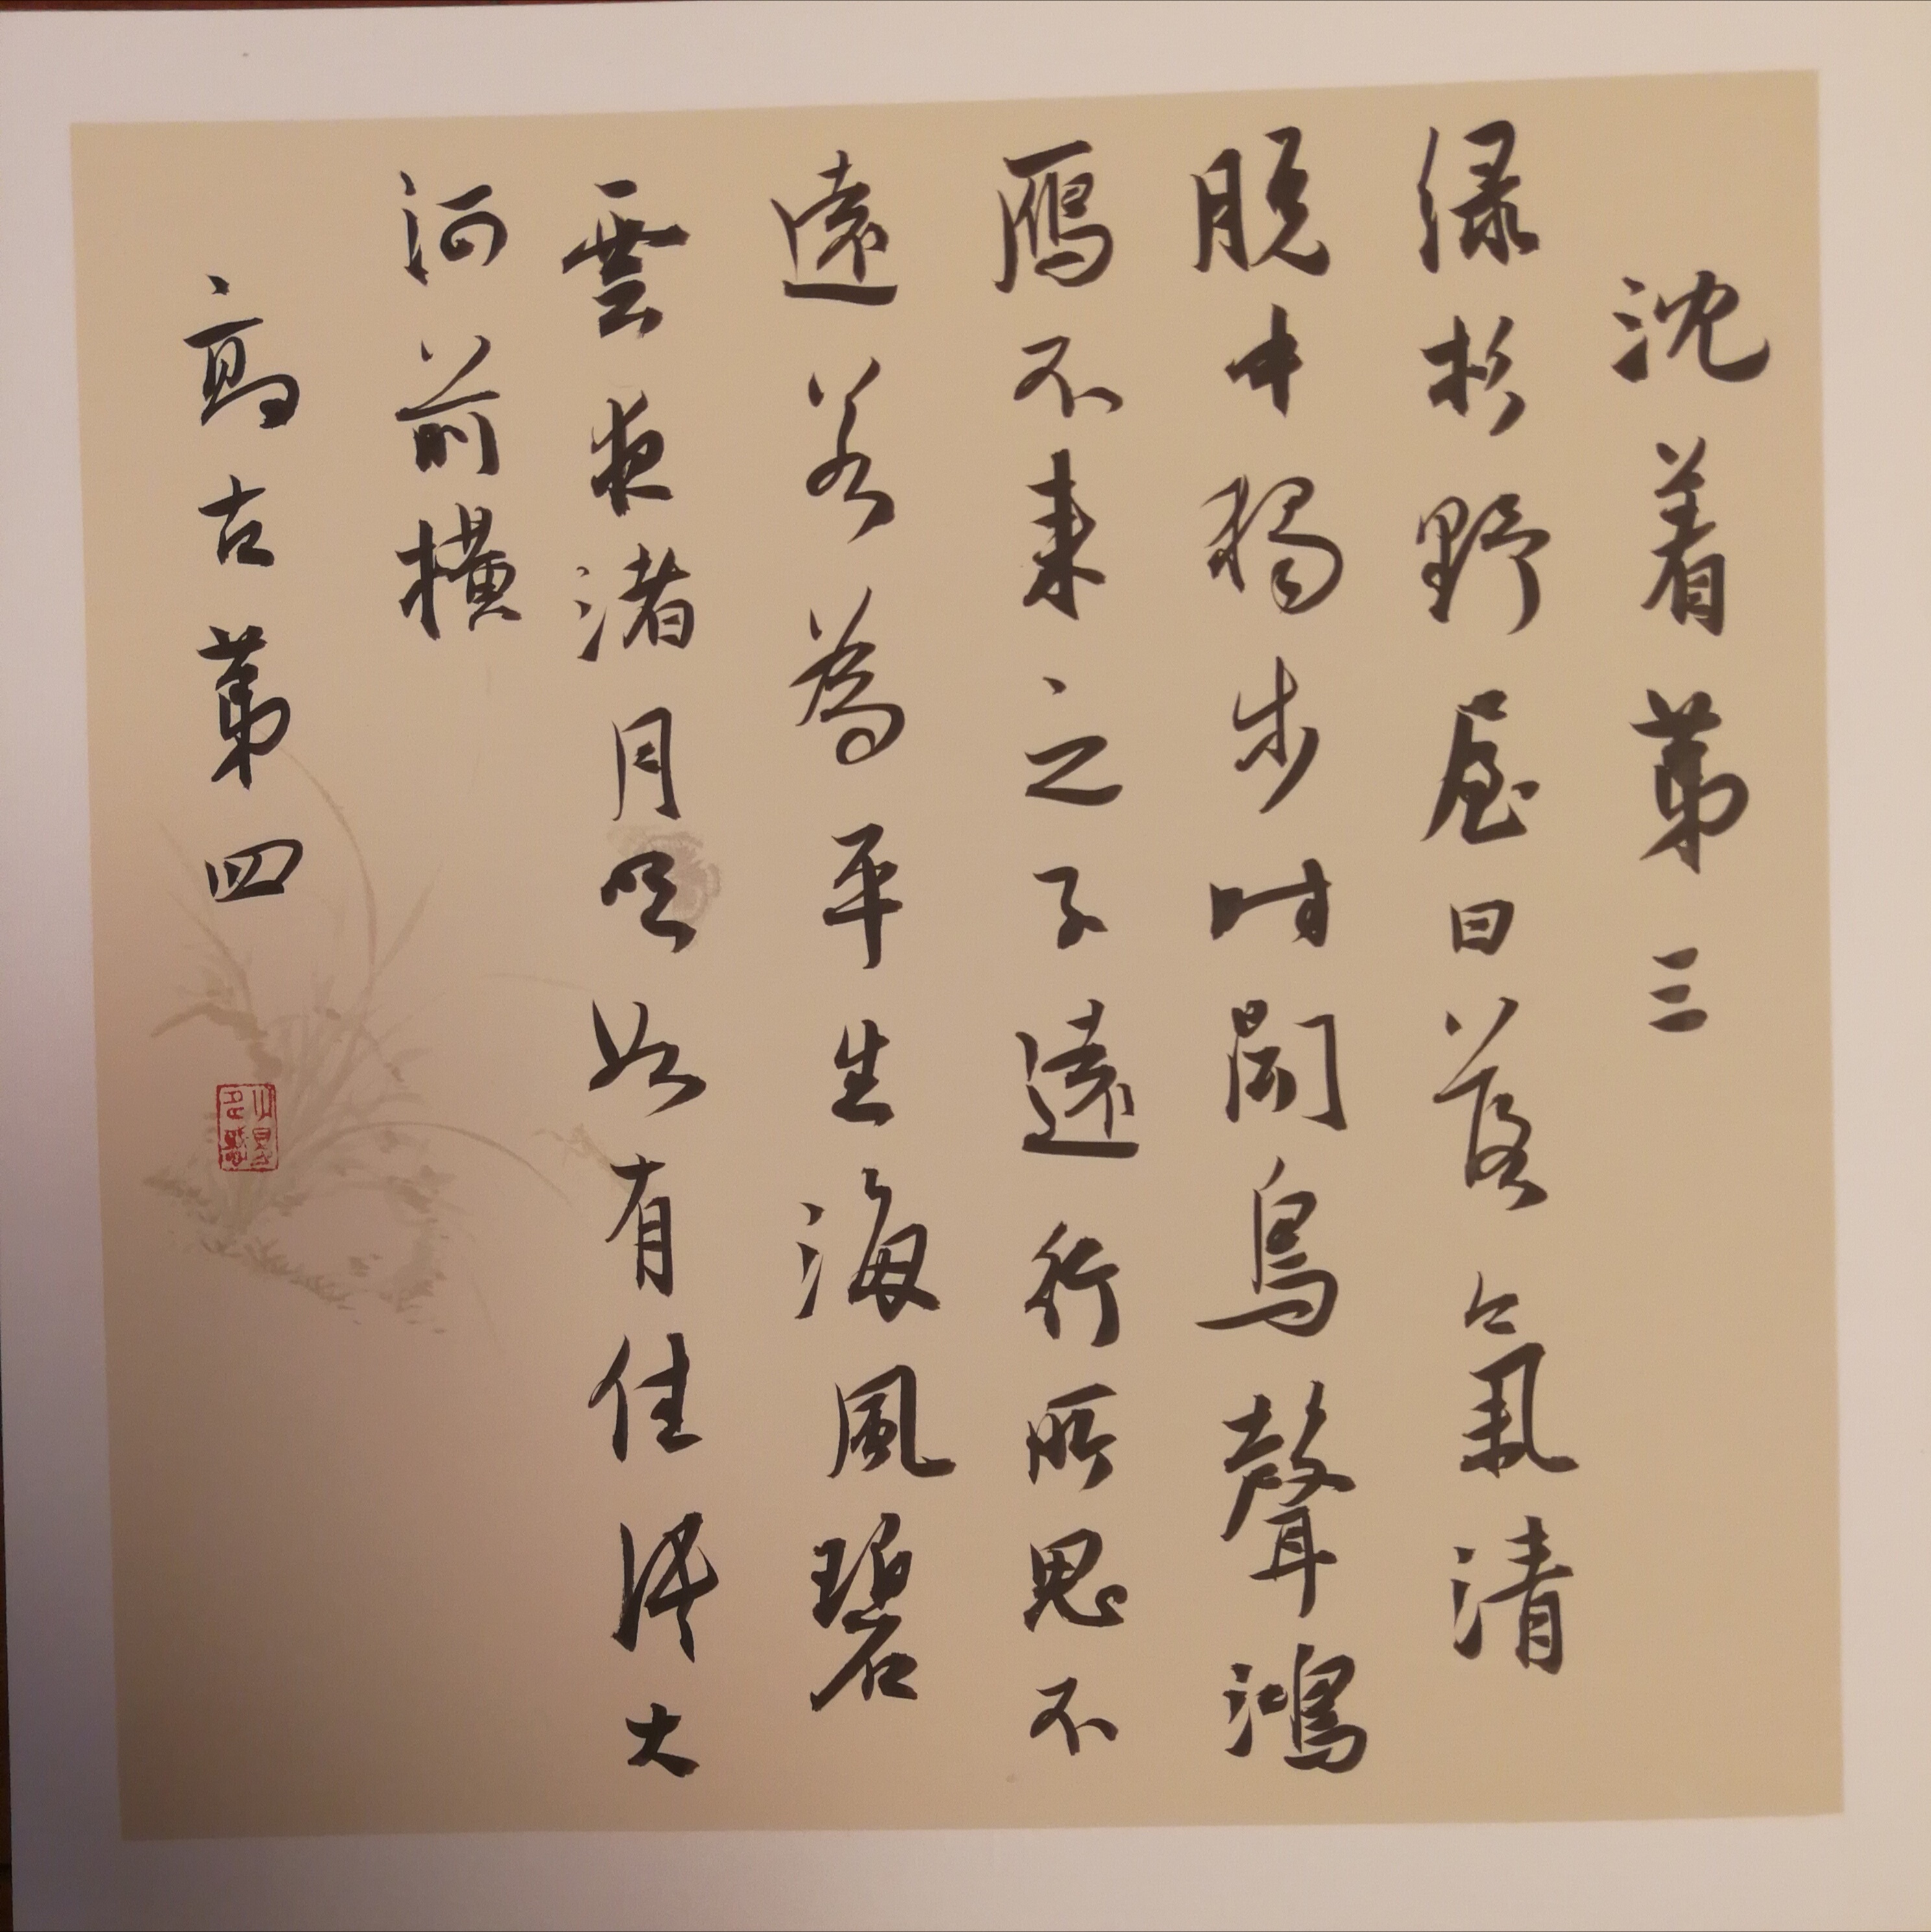 沈着第三
绿杉野屋日落氣清
脱巾獨步時聞鳥聲鴻
鴈不来之子遠行所思不
遠若為平生海風碧
雲夜渚月明如有佳語大
河前横
高古第四